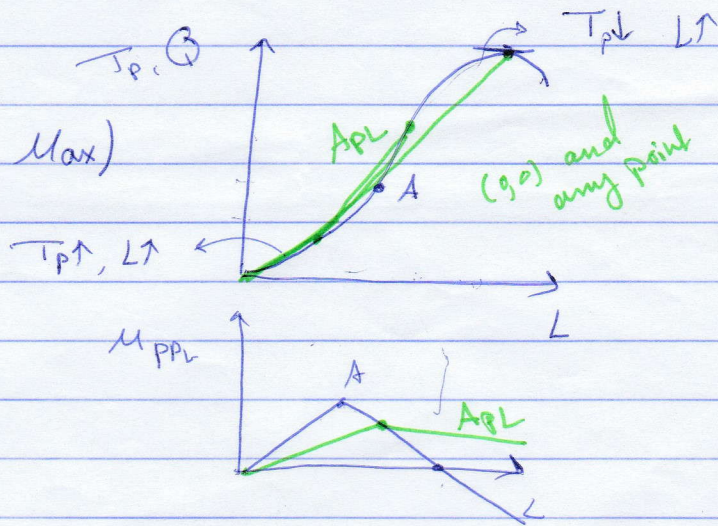 TP, Q
TP↓ L↑
Max)
APL
A
(0,0) and
any point
TP↑, L↑
L
MPPL
A
APL
L